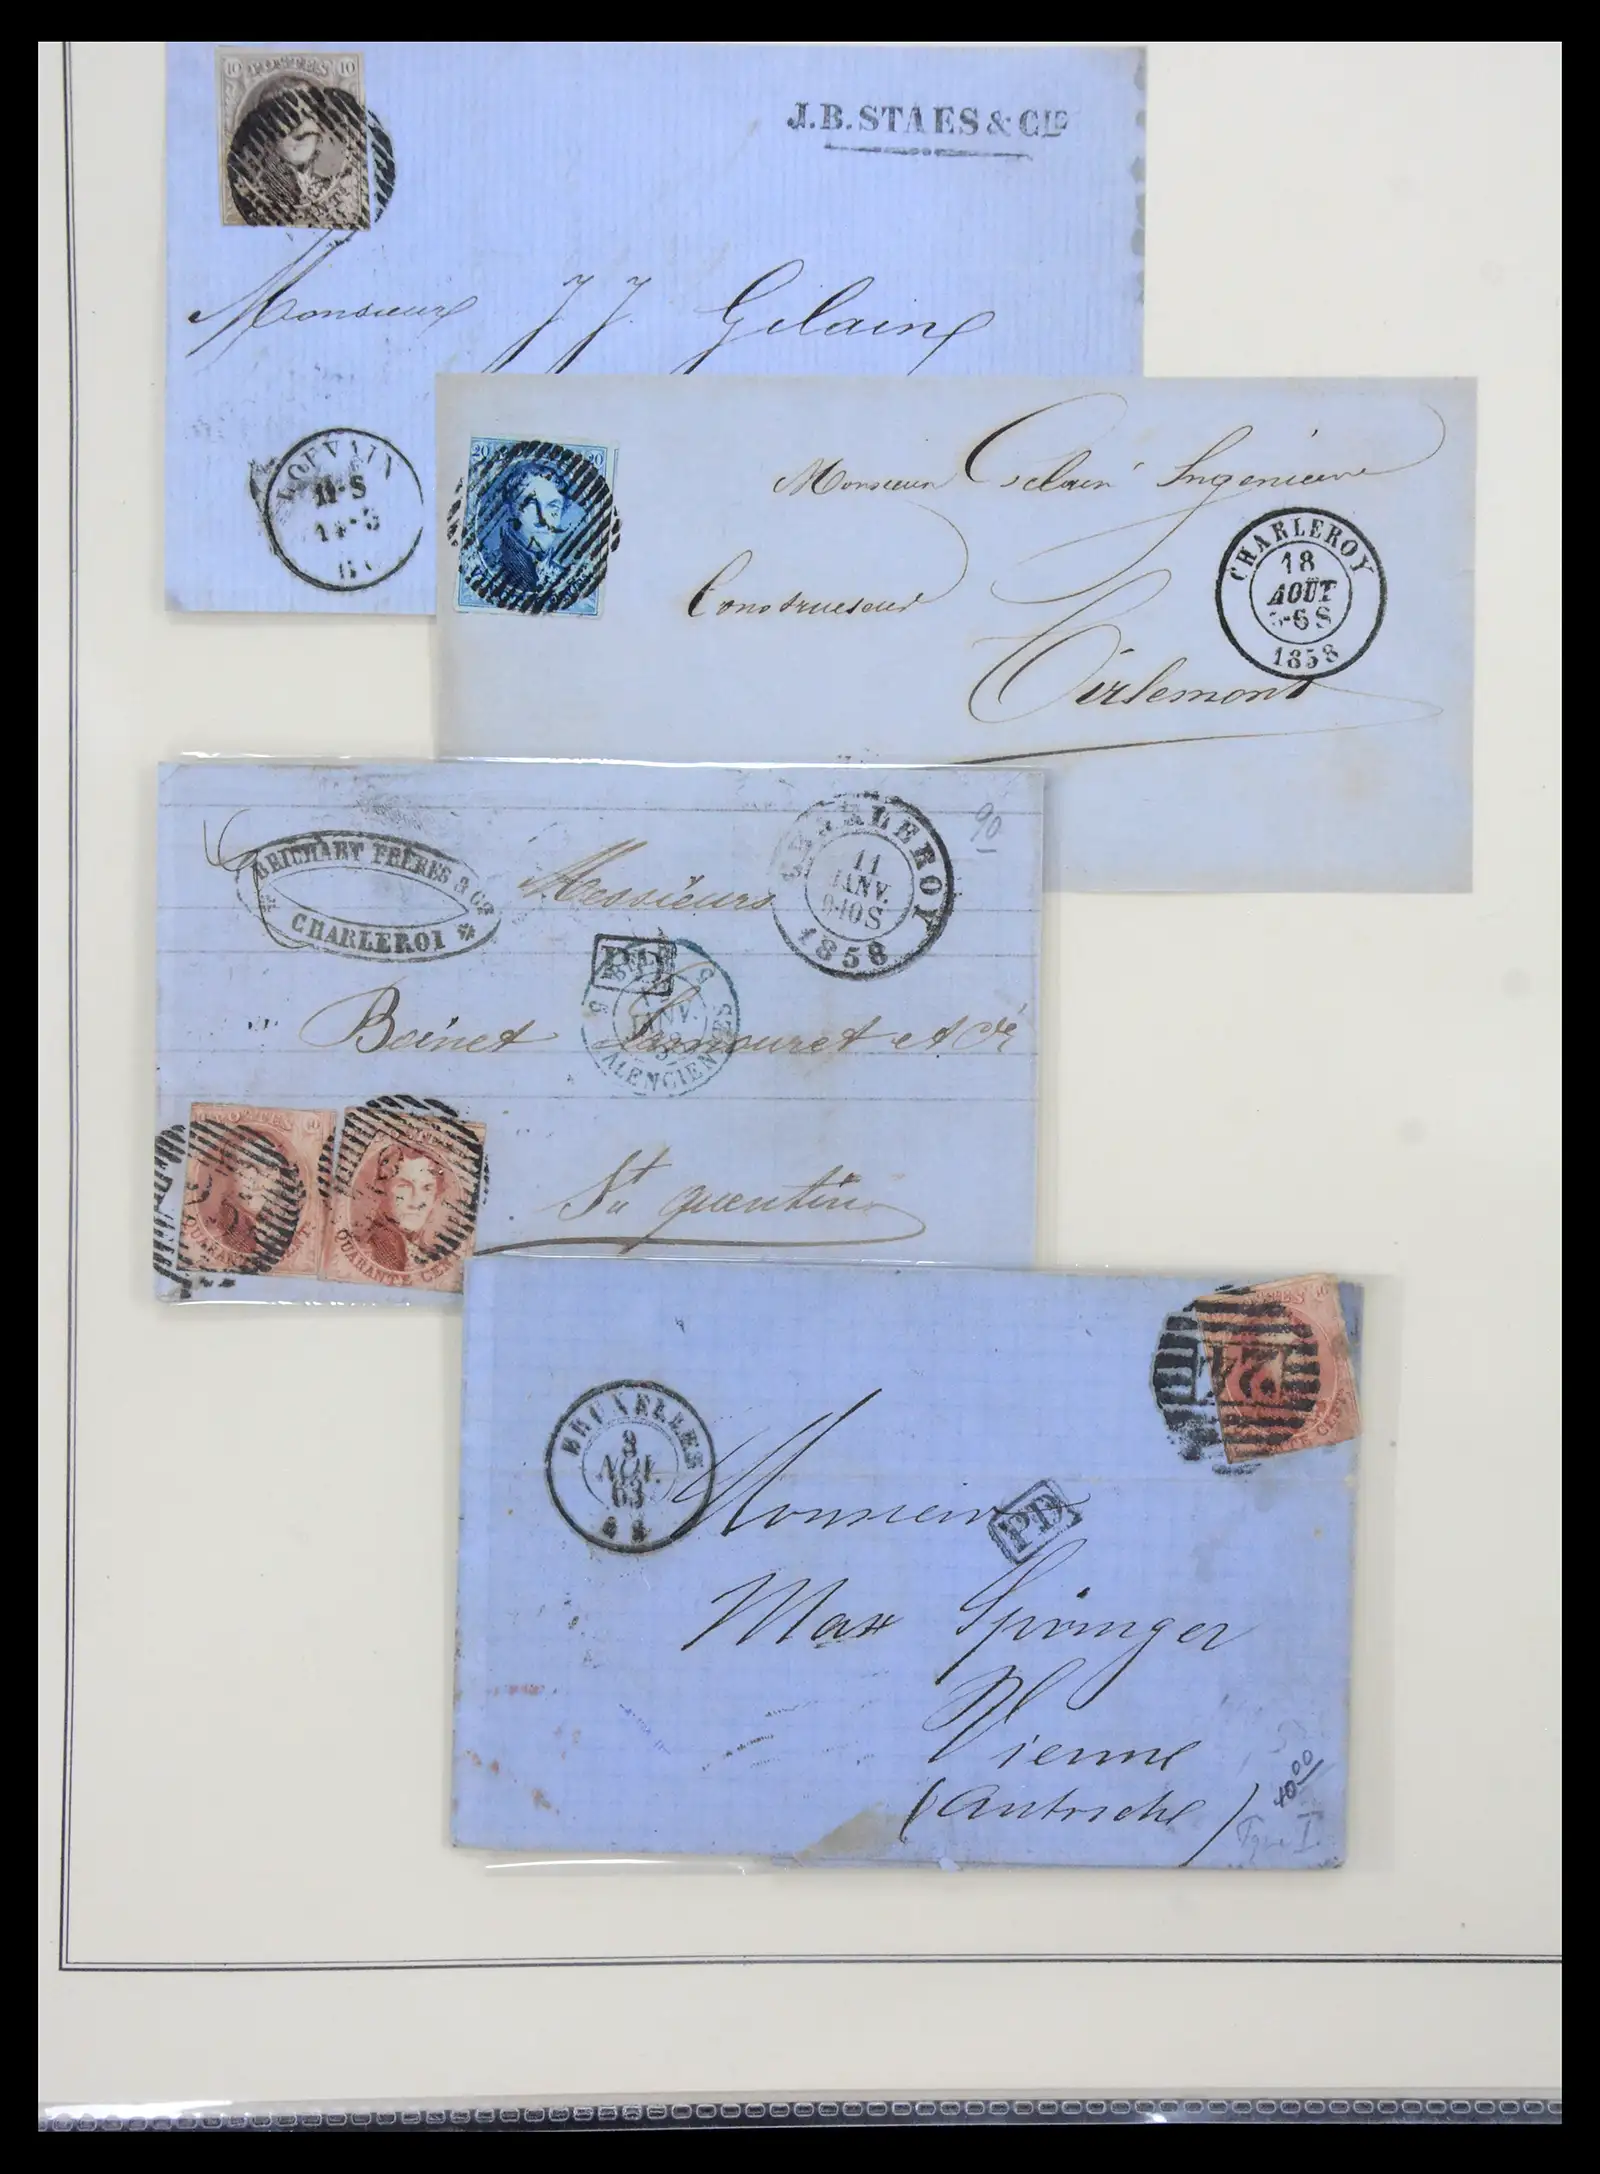 10 POSTES 10
J.B. STAES & CIE
Monsieur J J. Gilain
LOUVAIN
11-S
20 20
Monsieur Gilain Ingenieur
Constructeur
Tirlemont
CHARLEROY
18
AOÛT
-6 S
1858
90
FRÈRES & CIE
CHARLEROI
CHARLEROY
11
JANV.
9-10S
1858
Messieurs
VALENCIENNES
et Cie
St quentin
POSTES 40
QUARANTE CENT
QUARANTE CENT
BRUXELLES
3
NOV.
63
24
PD
Monsieur
Max Springer
Vienne
(Autriche)
40.00
Type I